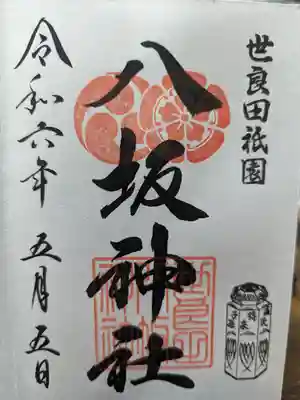 世良田祇園
八坂神社
令和六年 五月五日